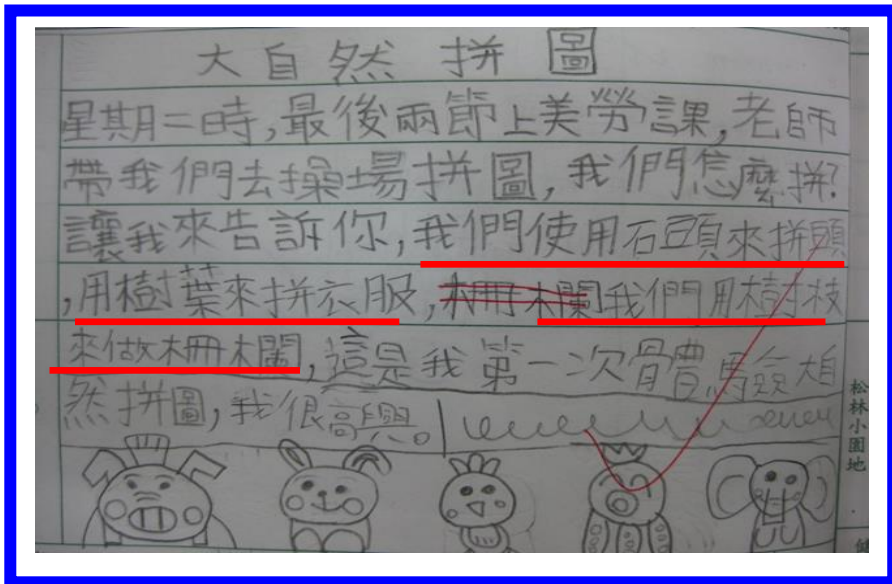 大自然拼圖
星期二時,最後兩節上美勞課,老師
帶我們去操場拼圖,我們怎麼拼?
讓我來告訴你,我們使用石頭來拼頭
,用樹葉來拼衣服,柵欄我們用樹枝
來做柵欄,這是我第一次體驗大自
然拼圖,我很高興。
松林小園地